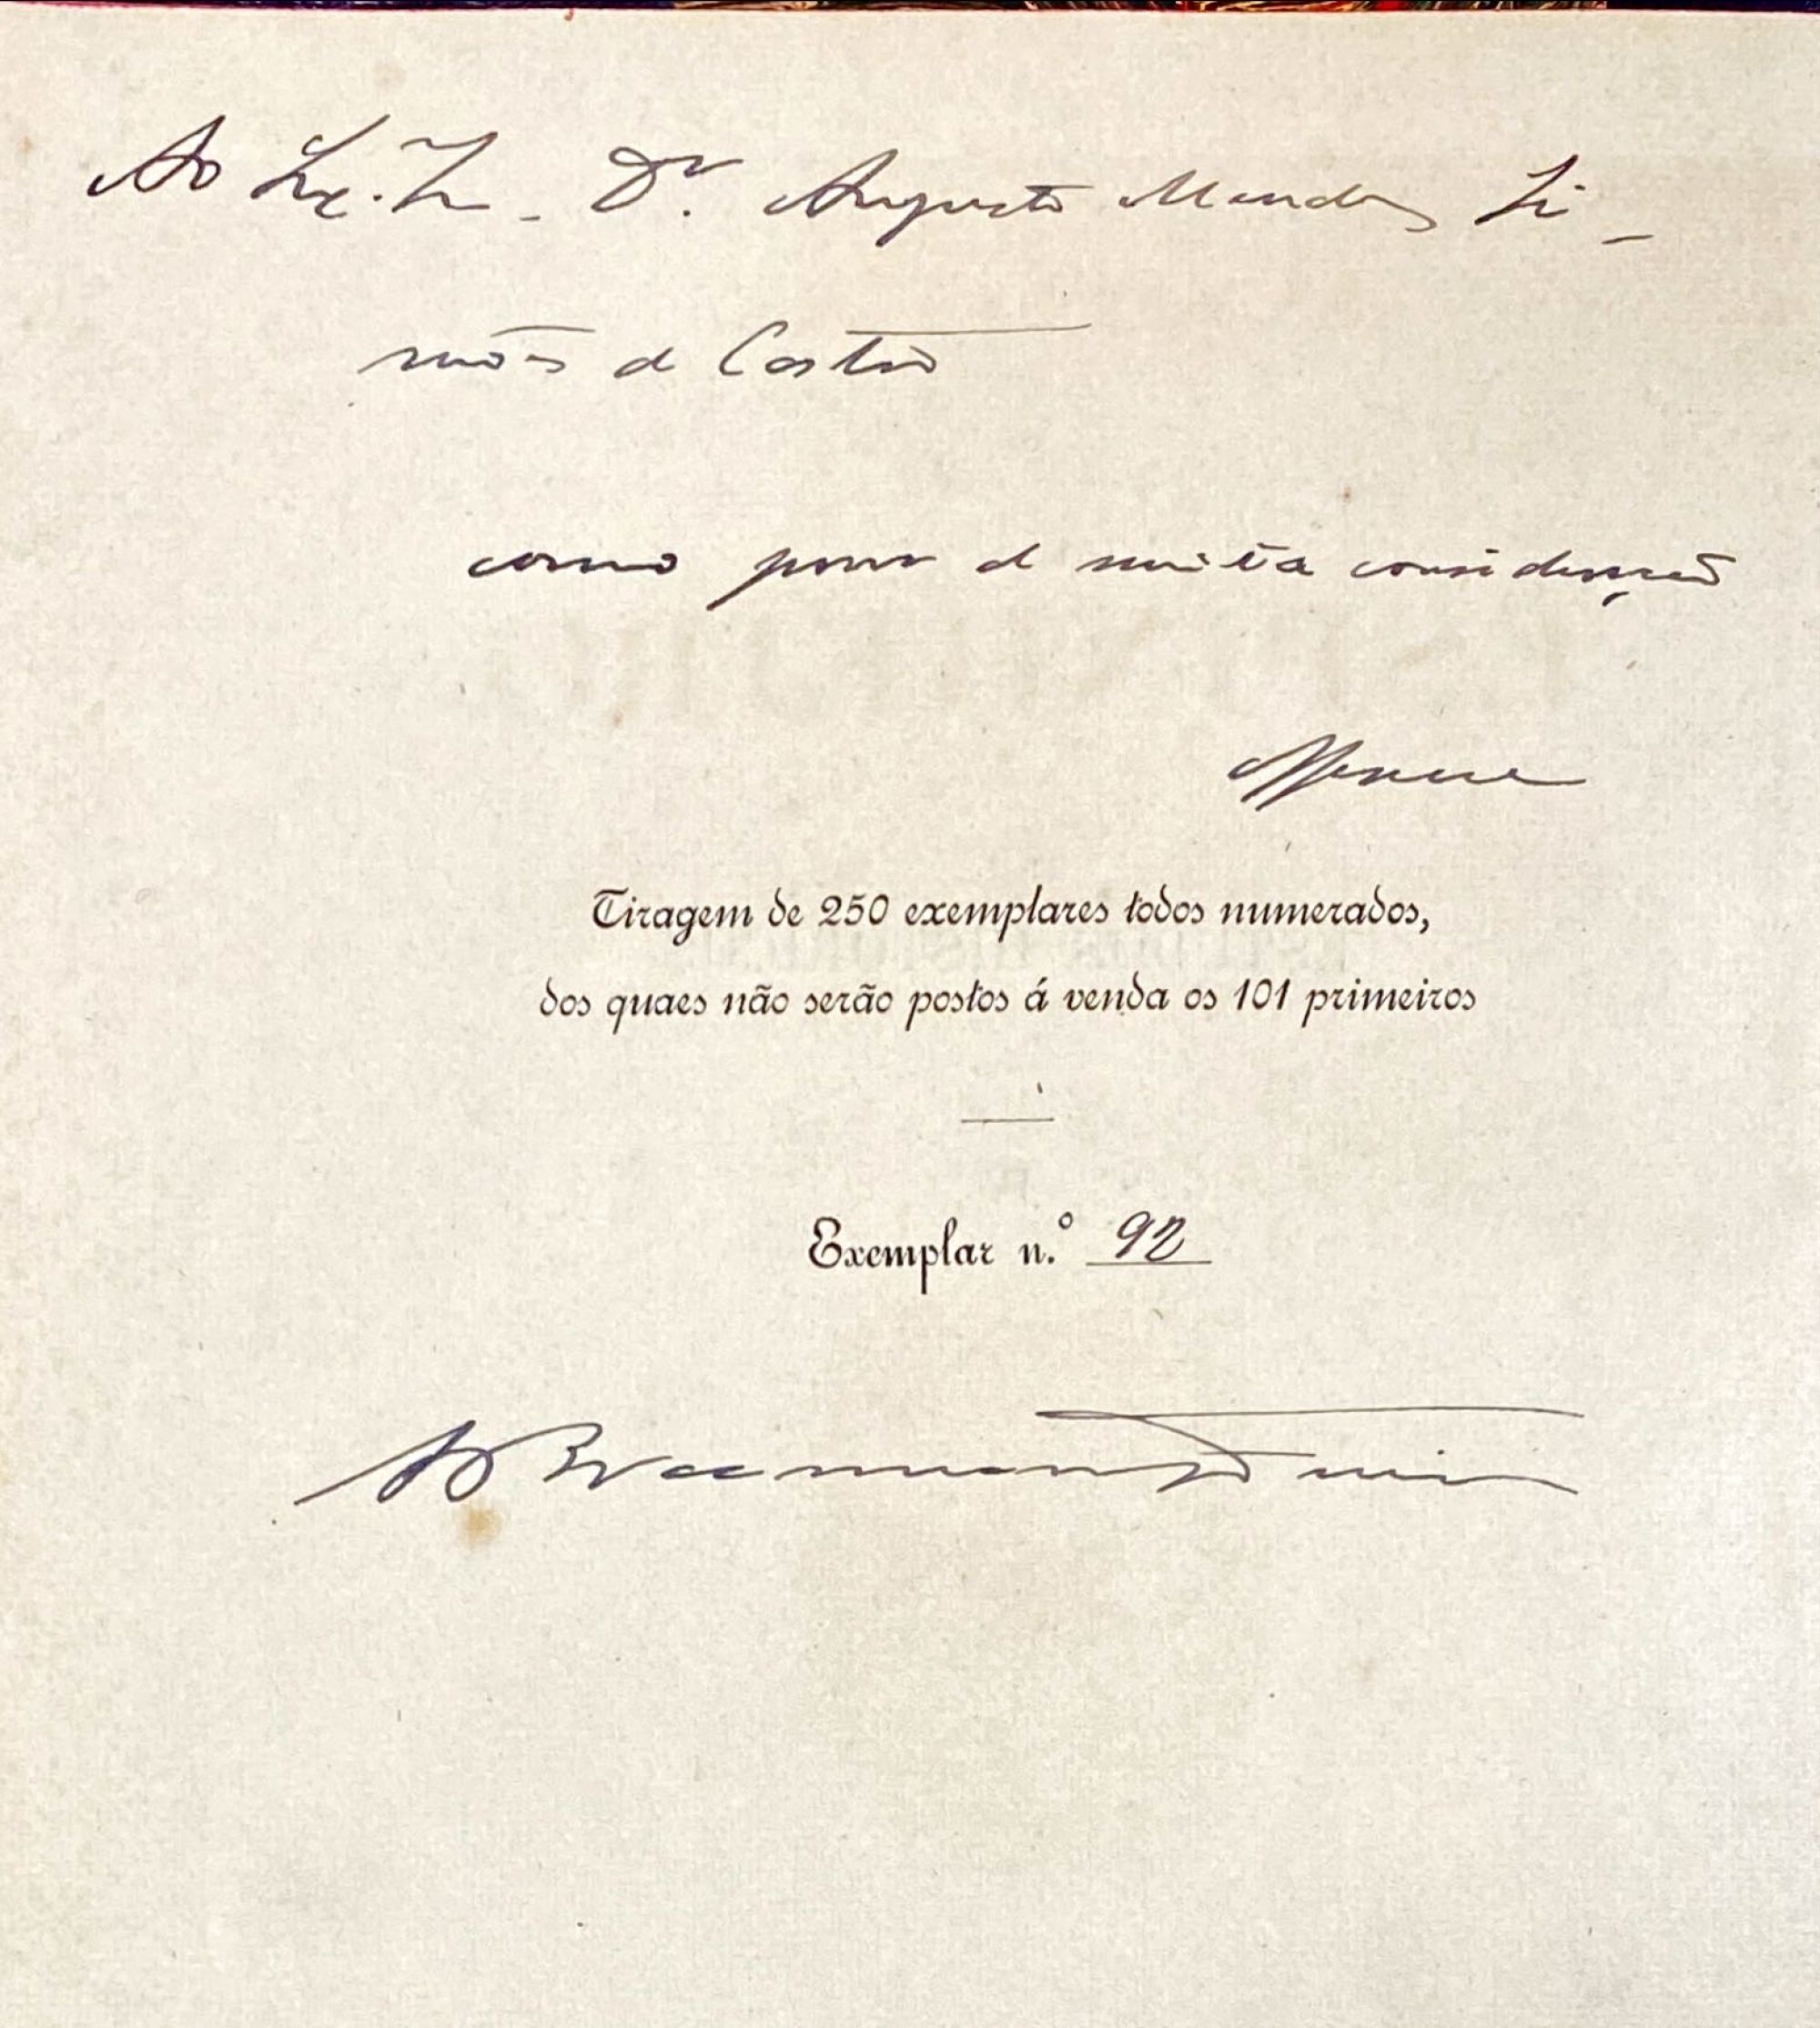 Ao Ex. Sr. Dr. Augusto Mendes Si-
mões de Castro
como prova de muita consideração
Offerece
Tiragem de 250 exemplares todos numerados,
dos quaes não serão postos á venda os 101 primeiros
Exemplar n.º 92
A Braamcamp Freire